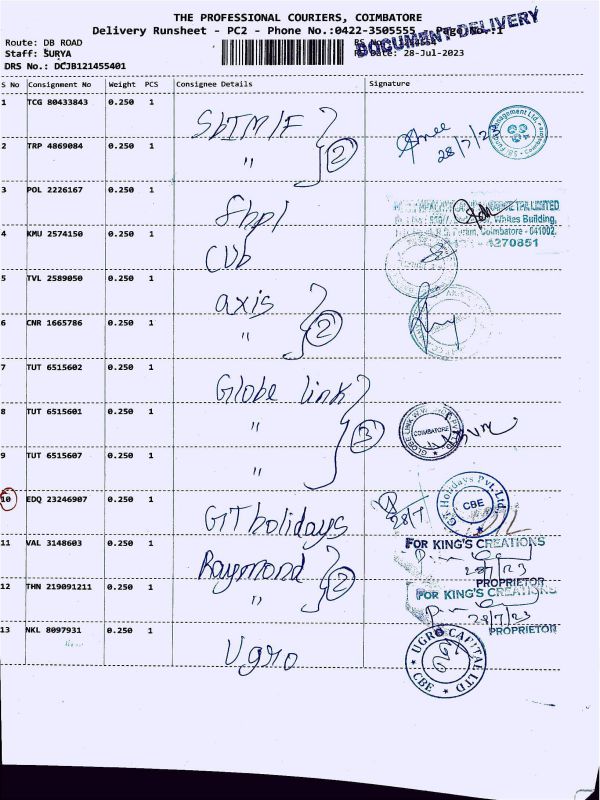 THE PROFESSIONAL COURIERS, COIMBATORE
Delivery Runsheet - PC2 - Phone No.:0422-3505555 Page No.:1
DOCUMENT DELIVERY
Route: DB ROAD
Staff: SURYA Date: 28-Jul-2023
DRS No.: DCJB121455401
S No Consignment No Weight PCS Consignee Details Signature
1 TCG 80433843 0.250 1 SbIMF
28/7/23
2 TRP 4869084 0.250 1 " 2
3 POL 2226167 0.250 1 Shpl
Whites Building,
Coimbatore - 641002.
4270851
4 KMU 2574150 0.250 1 CUb
5 TVL 2589050 0.250 1 axis
6 CNR 1665786 0.250 1 " 2
7 TUT 6515602 0.250 1 Globe link
8 TUT 6515601 0.250 1 " 3
COIMBATORE
9 TUT 6515607 0.250 1 "
10 EDQ 23246907 0.250 1 GT holidays
28/7
GT Holidays Pvt. Ltd.
CBE
11 VAL 3148603 0.250 1 Raymond
FOR KING'S CREATIONS
28/7/23
PROPRIETOR
12 THN 219091211 0.250 1 " 2
FOR KING'S CREATIONS
28/7/23
PROPRIETOR
13 NKL 8097931 0.250 1 Ugro
UGRO CAPITAL LTD
CBE